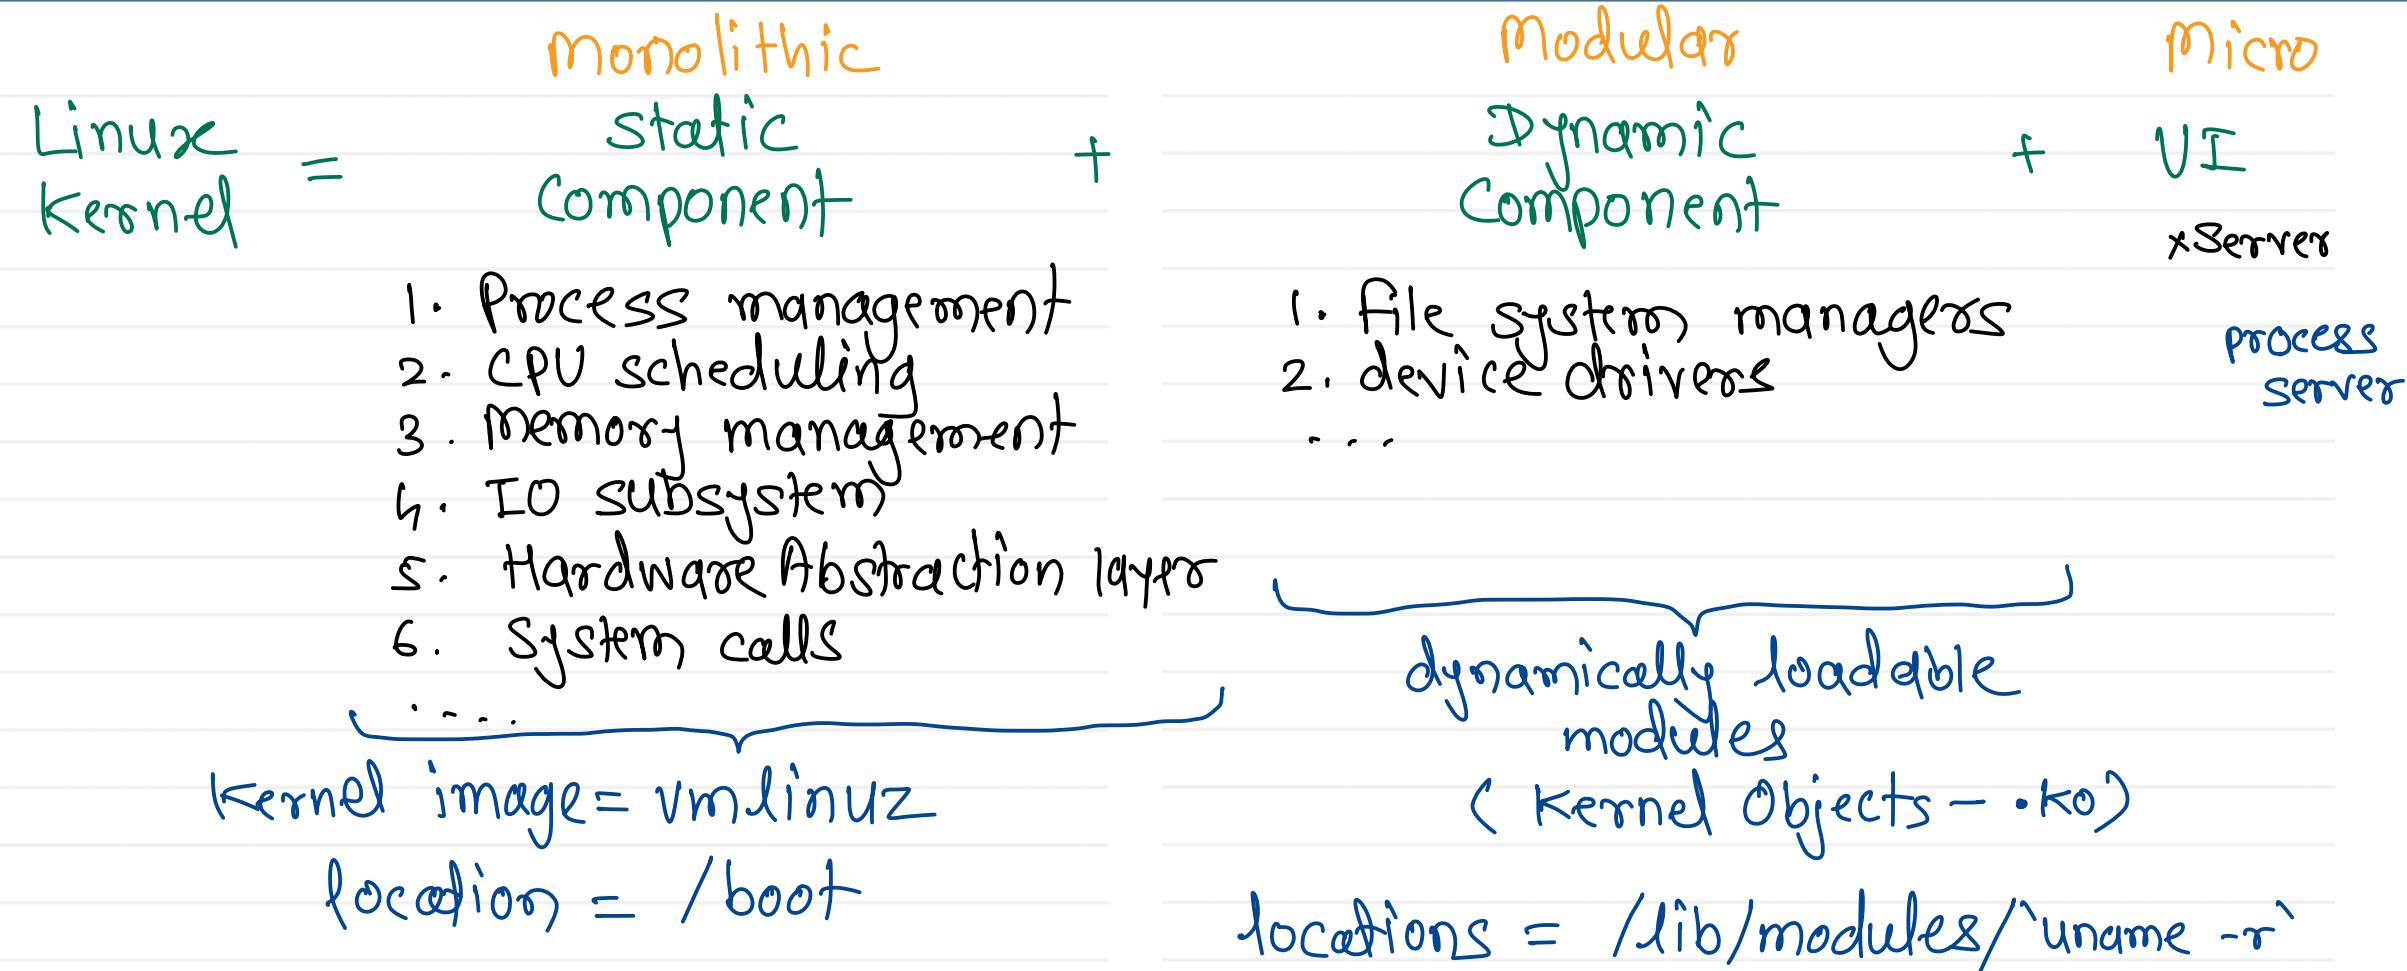 Monolithic Modular Micro
Linux Kernel = Static Component + Dynamic Component + UI
xServer
process
server
1. Process management
2. CPU scheduling
3. Memory management
4. IO subsystem
5. Hardware Abstraction layer
6. System calls
.....
1. file system managers
2. device drivers
...
Kernel image = vmlinuz
location = /boot
dynamically loadable
modules
(Kernel Objects - .ko)
locations = /lib/modules/`uname -r`